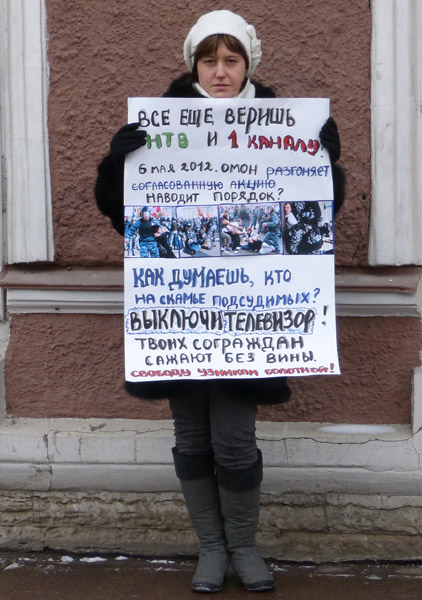 ВСЕ ЕЩЕ ВЕРИШЬ
НТВ И 1 КАНАЛУ?
6 МАЯ 2012. ОМОН РАЗГОНЯЕТ
СОГЛАСОВАННУЮ АКЦИЮ
НАВОДИТ ПОРЯДОК?
КАК ДУМАЕШЬ, КТО
НА СКАМЬЕ ПОДСУДИМЫХ?
ВЫКЛЮЧИ ТЕЛЕВИЗОР!
ТВОИХ СОГРАЖДАН
САЖАЮТ БЕЗ ВИНЫ.
СВОБОДУ УЗНИКАМ БОЛОТНОЙ!